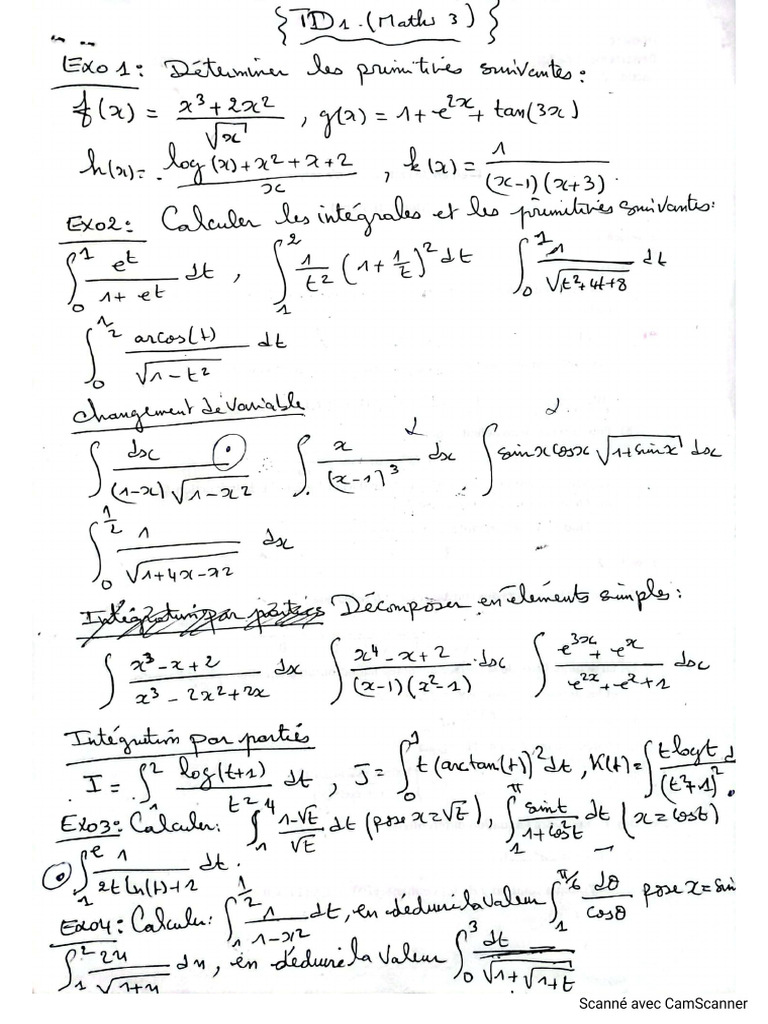 {TD1.(Maths 3)}
Exo1: Déterminer les primitives suivantes:
f(x) = (x³+2x²)/√x , g(x) = 1+e^(2x)+tan(3x)
h(x) = (log(x)+x²+x+2)/x , k(x) = 1/((x-1)(x+3)).
Exo2: Calculer les intégrales et les primitives suivantes:
∫₀¹ e^t/(1+e^t) dt , ∫₁² 1/t² (1+1/t)² dt ∫₀¹ 1/√(t²+4t+8) dt
∫₀^(1/2) arcos(t)/√(1-t²) dt
changement de variable
∫ dx/((1-x)√(1-x²)) ∫ x/(x-1)³ dx ∫ sinx cosx √(1+sinx) dx
∫₀^(1/2) 1/√(1+4x-x²) dx
Intégration par parties Décomposer en éléments simples:
∫ (x³-x+2)/(x³-2x²+2x) dx ∫ (x⁴-x+2)/((x-1)(x²-1)) dx ∫ (e^(3x)+e^x)/(e^(2x)+e^x+1) dx
Intégration par parties
I = ∫₁² log(t+1)/t² dt , J = ∫₀¹ t(arctan(t))² dt , K(t) = ∫ t log t/(t²+1)² d
Exo3: Calculer: ∫₁⁴ (1-√t)/√t dt (pose x=√t), ∫₁^π sint/(1+cos²t) dt (x=cost)
∫₁^e 1/(2t ln(t)+2) dt.
Exo4: Calculer: ∫₁^(1/2) 1/(1-x²) dt, en déduire la valeur ∫₁^(π/6) dθ/cosθ pose x=sin
∫₁² 2u/√(1+u) du, en déduire la valeur ∫₀³ dt/√(1+√(1+t))
Scanné avec CamScanner